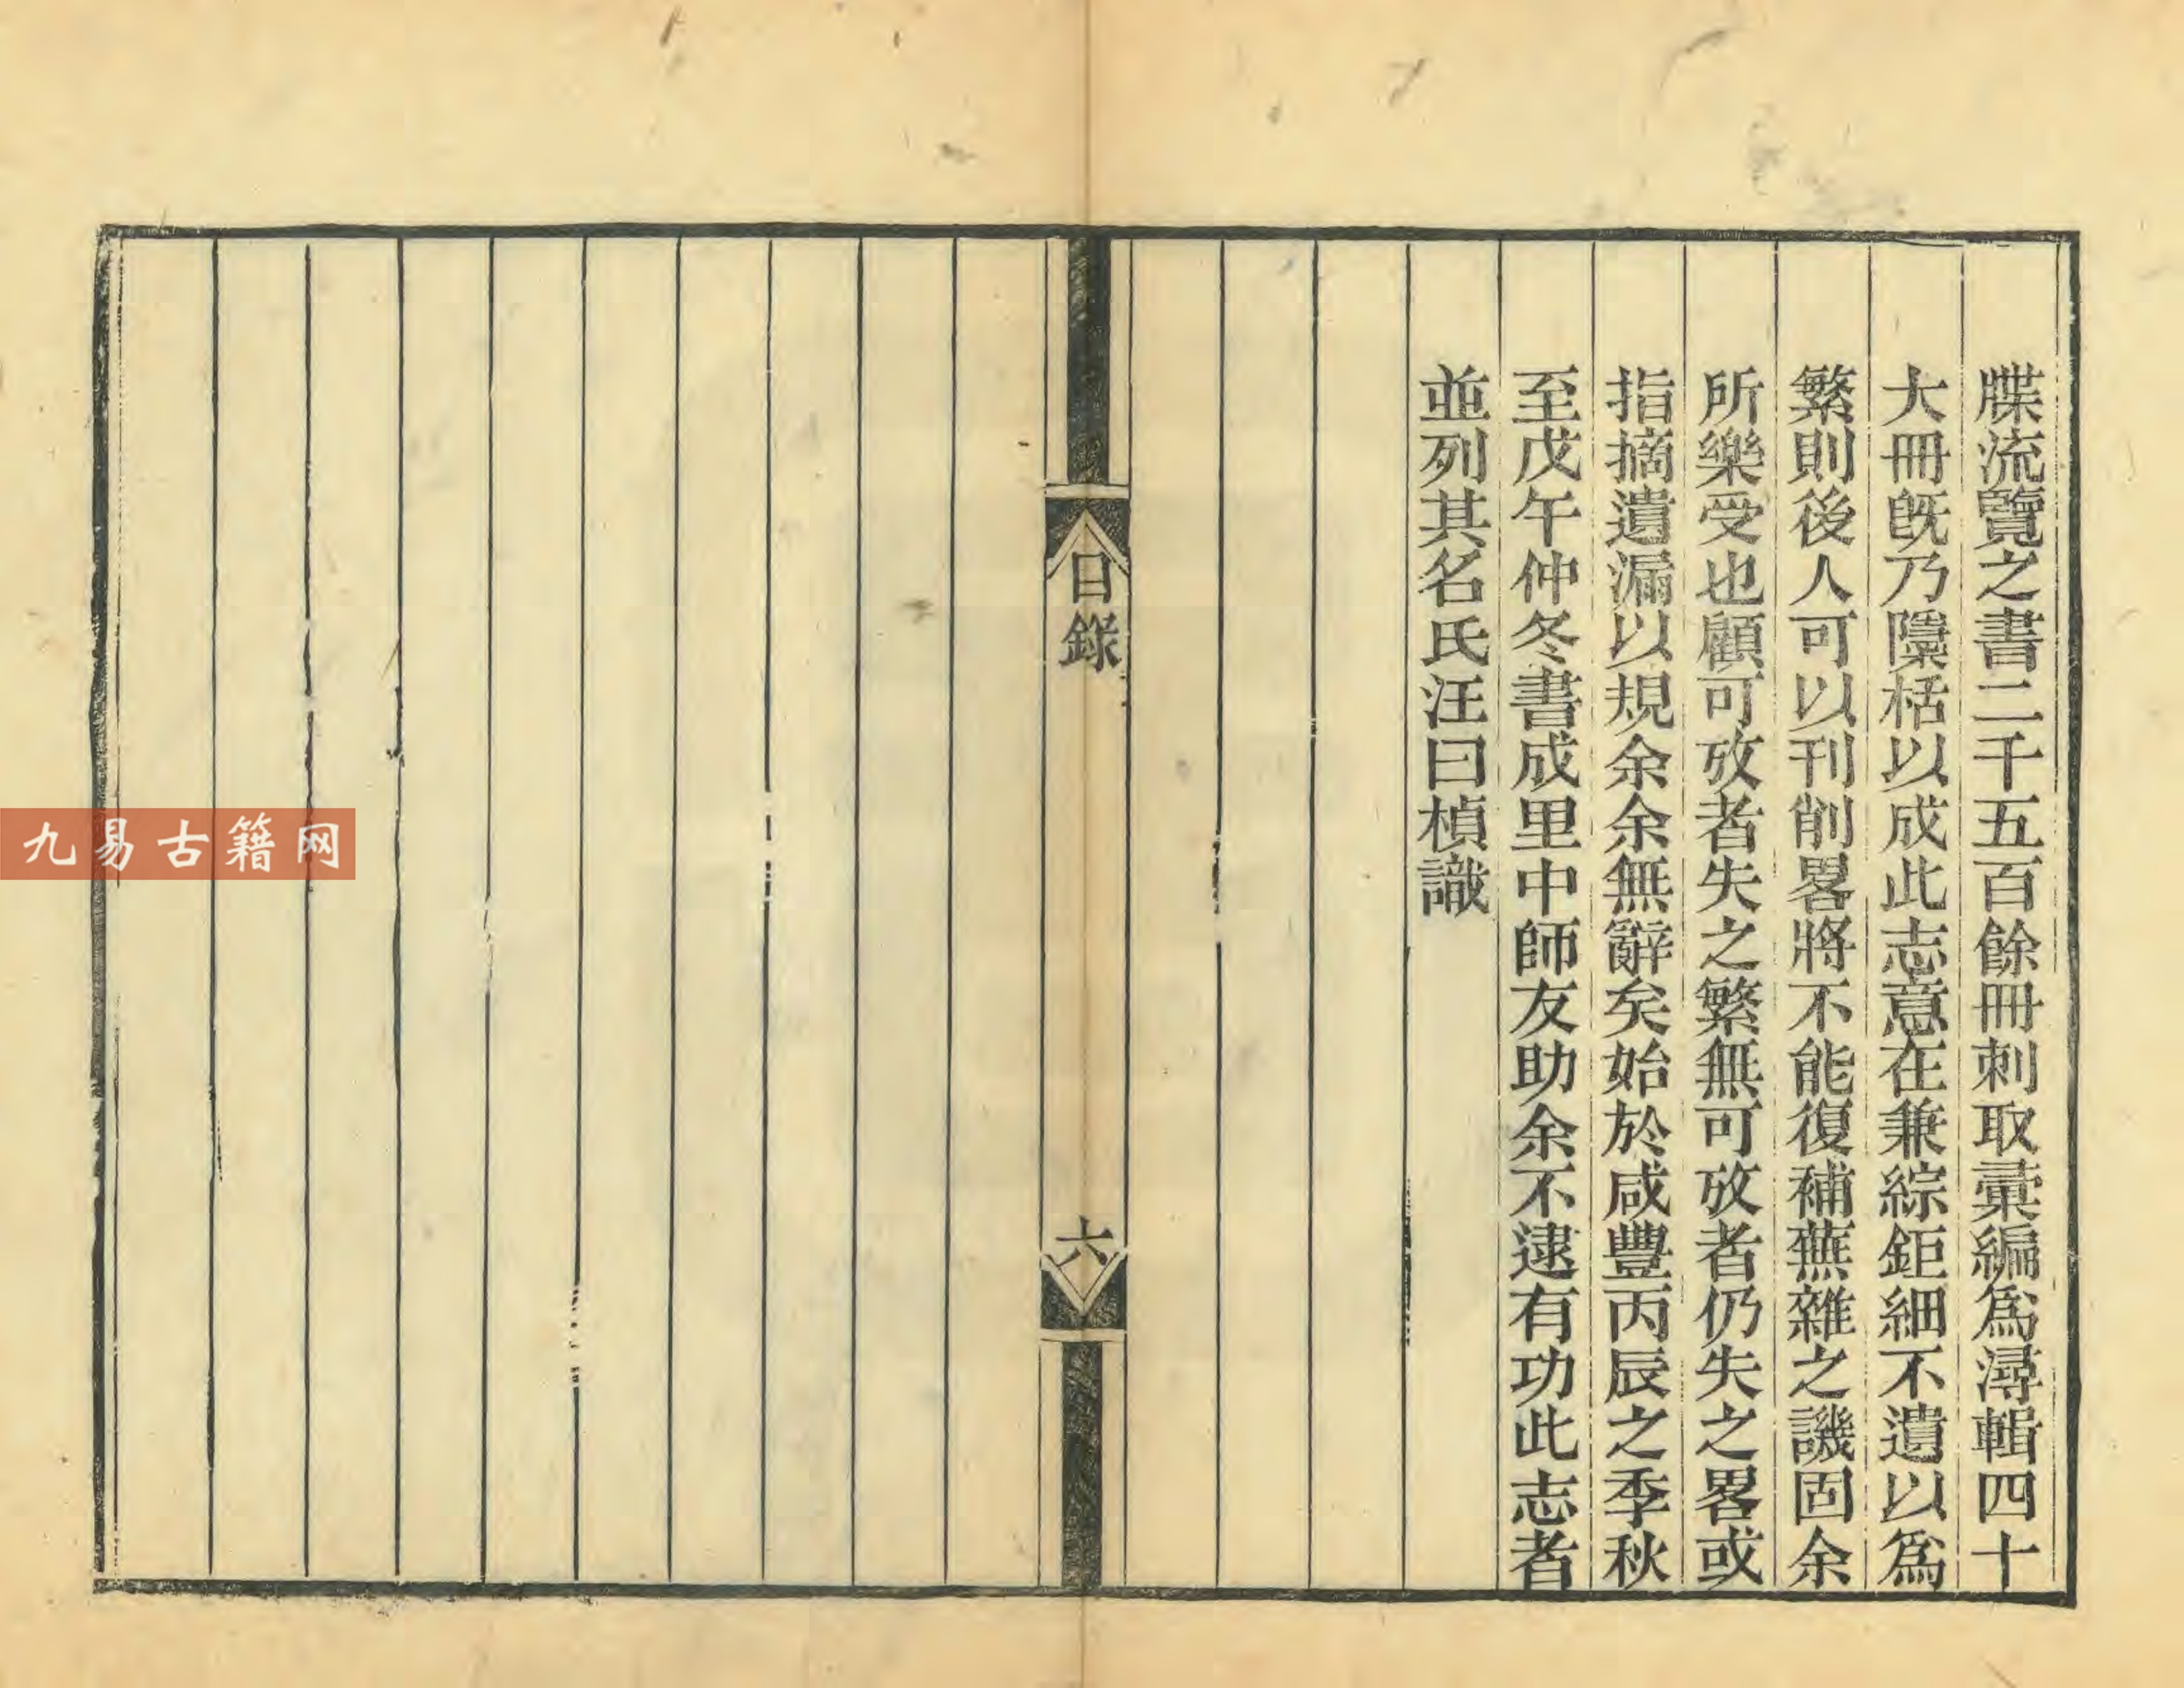 牒流覽之書二千五百餘冊刺取彙編爲潯輯四十
大冊旣乃隱栝以成此志意在兼綜鉅細不遺以爲
繁則後人可以刊削畧將不能復補蕪雜之譏固余
所樂受也顧可攷者失之繁無可攷者仍失之畧或
指摘遺漏以規余余無辭矣始於咸豐丙辰之季秋
至戊午仲冬書成里中師友助余不逮有功此志者
並列其名氏汪曰楨識
目錄
六
九易古籍网